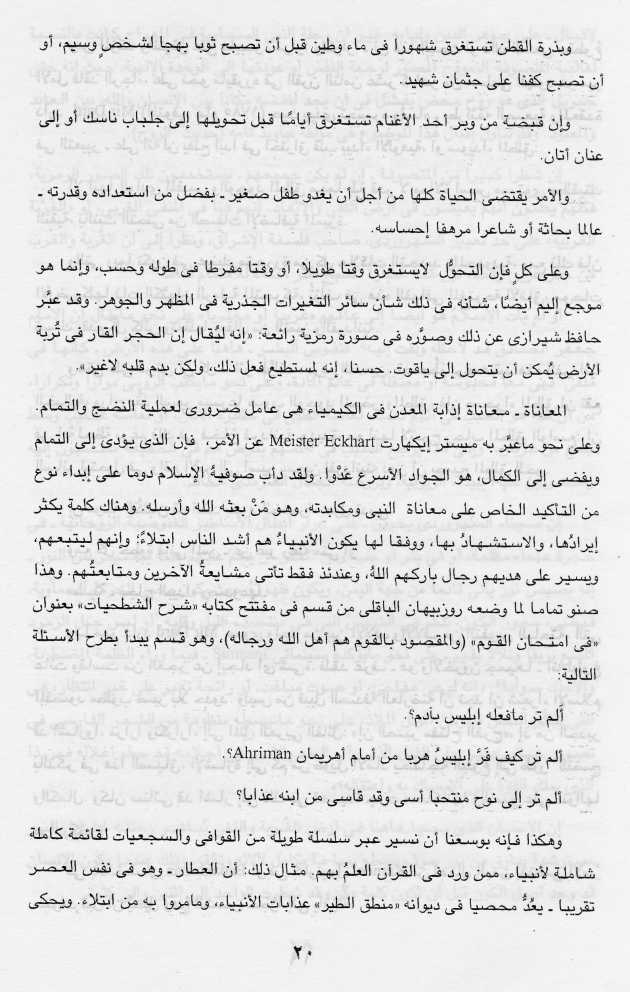 وبذرة القطن تستغرق شهورا فى ماء وطين قبل أن تصبح ثوبا بهجا لشخصٍ وسيم، أو
أن تصبح كفنا على جثمان شهيد.
وإن قبضة من وبر أحد الأغنام تستغرق أيامًا قبل تحويلها إلى جلباب ناسك أو إلى
عنان أتان.
والأمر يقتضى الحياة كلها من أجل أن يغدو طفل صغير ـ بفضل من استعداده وقدرته ـ
عالما بحاثة أو شاعرا مرهفا إحساسه.
وعلى كلٍ فإن التحوُّل لايستغرق وقتا طويلا، أو وقتا مفرطا فى طوله وحسب، وإنما هو
موجع إليم أيضًا، شأنه فى ذلك شأن سائر التغيرات الجذرية فى المظهر والجوهر. وقد عبَّر
حافظ شيرازى عن ذلك وصوَّره فى صورة رمزية رائعة: «إنه ليُقال إن الحجر القار فى تُربة
الأرض يُمكن أن يتحول إلى ياقوت. حسنا، إنه لمستطيع فعل ذلك، ولكن بدم قلبه لاغير».
المعاناة ـ معاناة إذابة المعدن فى الكيمياء هى عامل ضرورى لعملية النضج والتمام.
وعلى نحو ماعبَّر به ميستر إيكهارت Meister Eckhart عن الأمر، فإن الذى يؤدى إلى التمام
ويفضى إلى الكمال، هو الجواد الأسرع عَدْوا. ولقد دأب صوفية الإسلام دوما على إبداء نوع
من التأكيد الخاص على معاناة النبى ومكابدته، وهو مَنْ بعثه الله وأرسله. وهناك كلمة يكثر
إيرادُها، والاستشهاد بها، ووفقا لها يكون الأنبياءُ هم أشد الناس ابتلاءً؛ وإنهم ليتبعهم،
ويسير على هديهم رجال باركهم اللهُ، وعندئذ فقط تأتى مشايعةُ الآخرين ومتابعتُهم. وهذا
صنو تماما لما وضعه روزبيهان الباقلى من قسم فى مفتتح كتابه «شرح الشطحيات» بعنوان
«فى امتحان القوم» (والمقصود بالقوم هم أهل الله ورجاله)، وهو قسم يبدأ بطرح الأسئلة
التالية:
ألم تر مافعله إبليس بآدم؟.
ألم تر كيف فَرَّ إبليسُ هربا من أمام أهريمان Ahriman؟.
ألم تر إلى نوح منتحبا أسى وقد قاسى من ابنه عذابا؟
وهكذا فإنه بوسعنا أن نسير عبر سلسلة طويلة من القوافى والسجعيات لقائمة كاملة
شاملة لأنبياء، ممن ورد فى القرآن العلمُ بهم. مثال ذلك: أن العطار ـ وهو فى نفس العصر
تقريبا ـ يعُدُّ محصيا فى ديوانه «منطق الطير» عذابات الأنبياء، ومامروا به من ابتلاء. ويحكى
٢٠